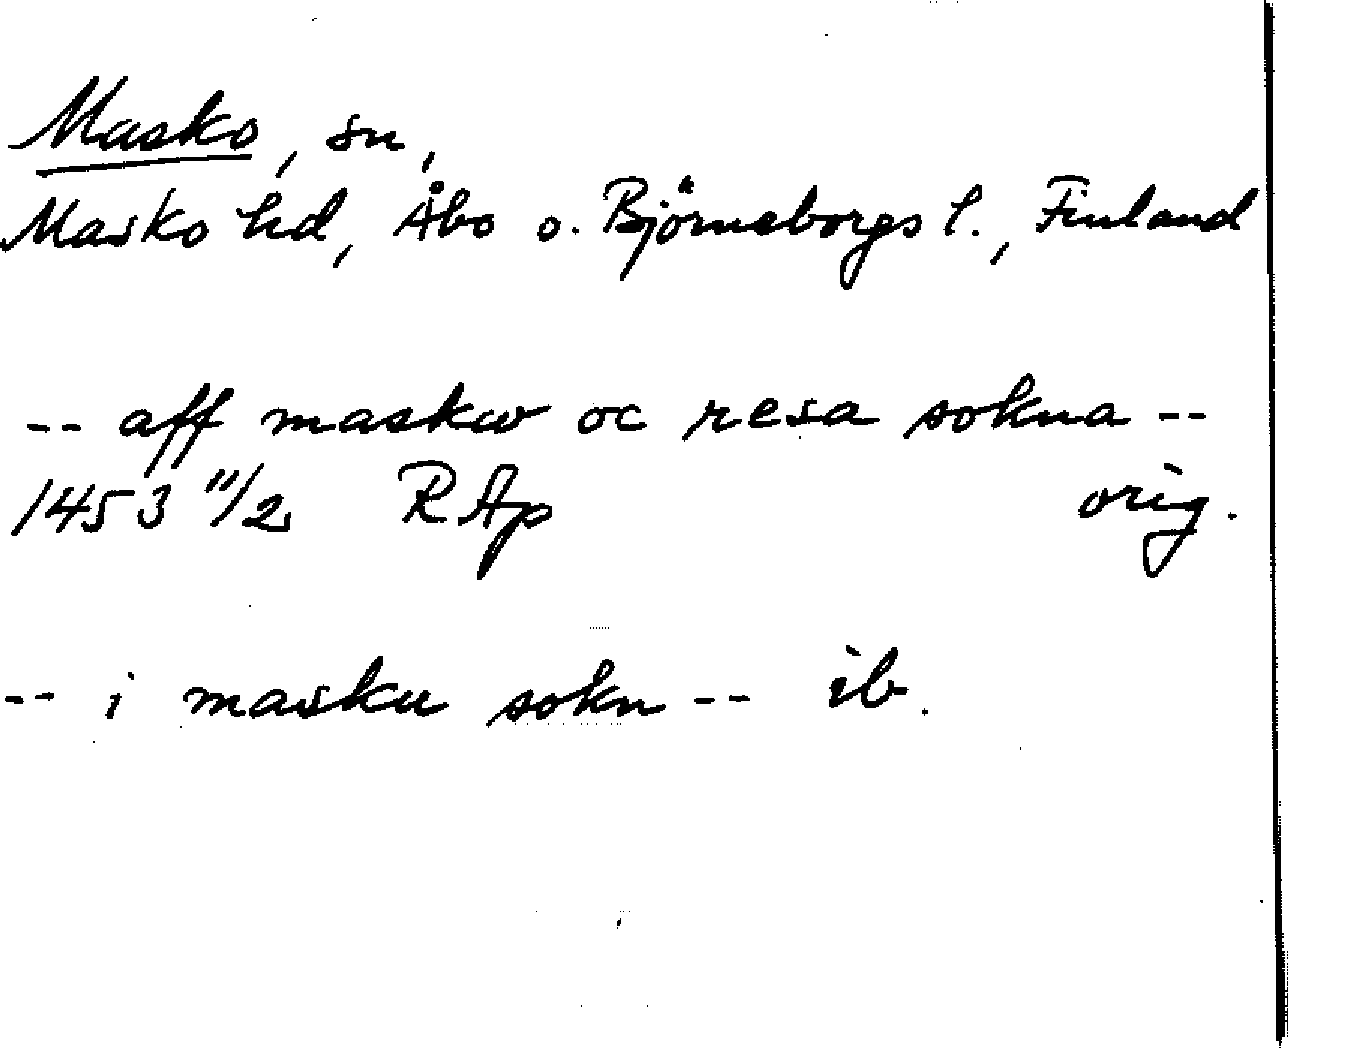 Masko, sn,
Masko hd, Åbo o. Björneborgs l., Finland
-- aff maskw oc resa sokna --
1453 11/2 RAp orig.
-- i masku sokn -- ib.